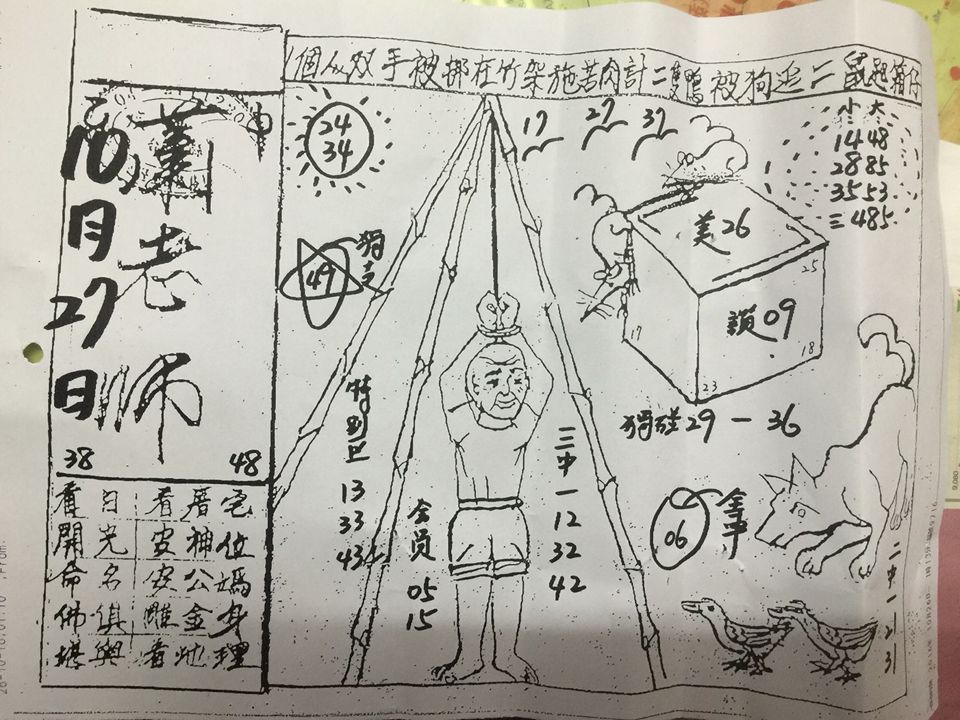 個人双手被挷在竹架施苦肉計二隻鴨被狗追二鼠起箱仔
蕭老師
10月27日
38 48
看日看厝宅
開光安神位
命名安公媽
佛俱雕金身
堪輿看地理
24
34
17 27 37
小大
14 48
28 85
35 53
三 485
獨支
49
美26
鎖09
25
17
18
23
獨碰29－36
特別巴
13
33
43
会員
05
15
三中一
12
32
42
06
二中一
21
31